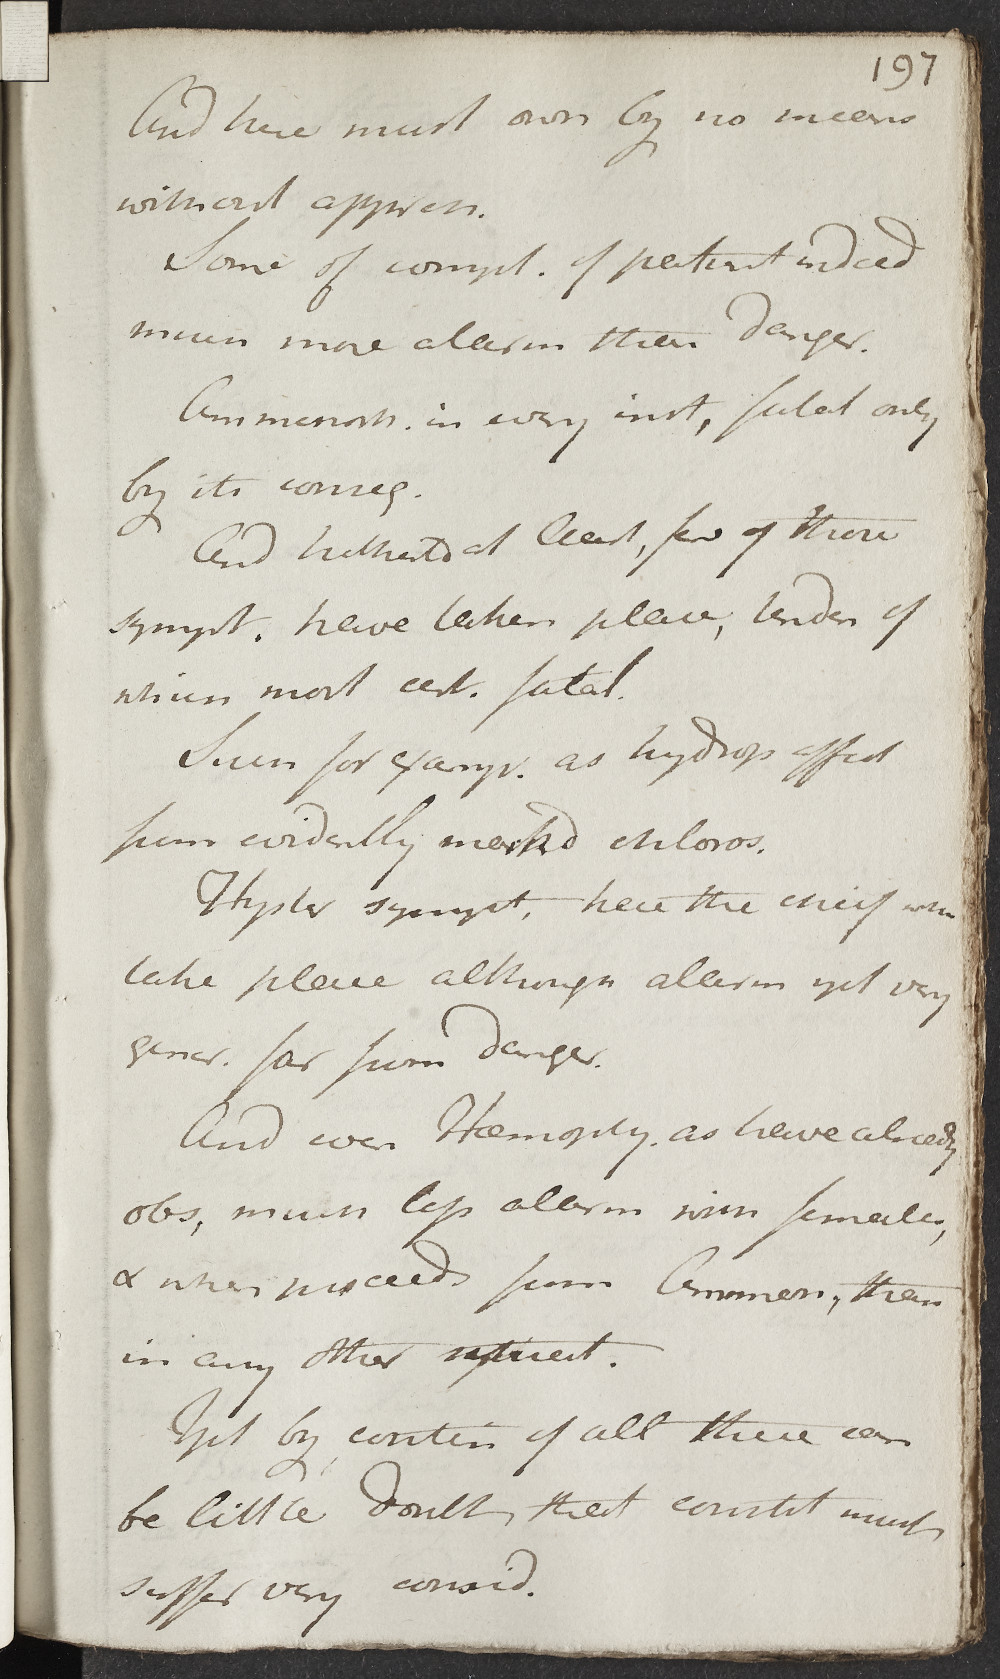 197
And here must own by no means
without appreh.
Some of compl. of patient indeed
much more allarm than Danger.
Ammenorh. in every inst, fatal only
by its conseq.
And hitherto at least, few of those
sympt. have taken place, tenden of
which most cert. fatal.
Such for examp. as hydrop affect
from evidently markd chloros.
Hyster sympt, here the chief when
take place although allarm yet very
gener. far from Danger.
And even Hæmopty. as have already
obs, much less allarm with females,
& when proceeds from Ammen, than
in any other
Yet by contin of all these can
be little doubt, that constit must
suffer very consid.